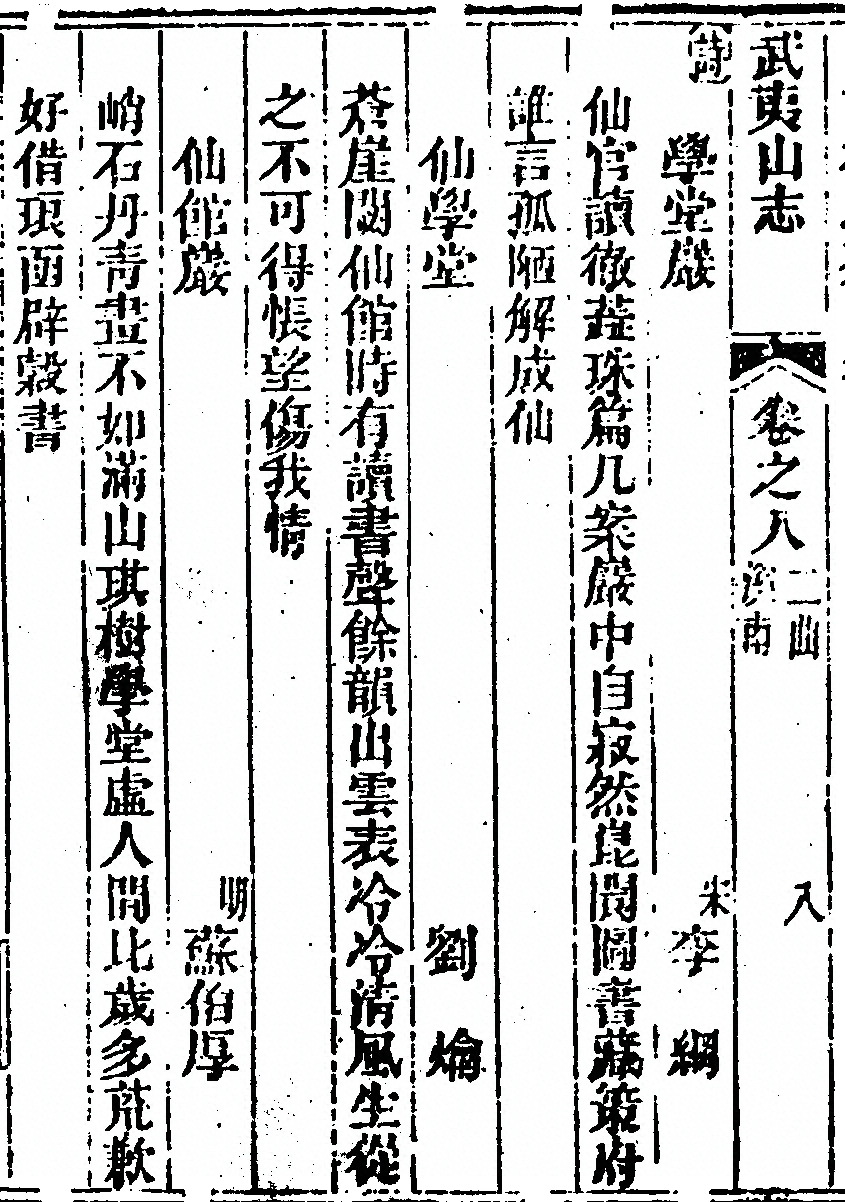 武夷山志
卷之八
二曲
溪南
八
詩
學堂巖
宋
李綱
仙官讀徹蕊珠篇几案巖中自寂然崑閬圖書藏策府
誰言孤陋解成仙
仙學堂
劉爚
蒼崖閟仙館時有讀書聲餘韻出雲表冷冷清風生從
之不可得悵望傷我情
仙館巖
明
蘇伯厚
峭石丹青畫不如滿山琪樹學堂虛人間比歲多荒歉
好借琅函辟穀書